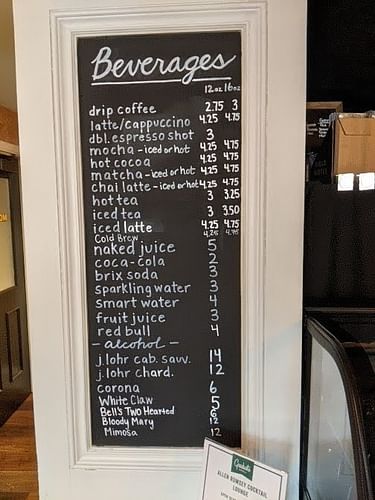 Beverages
12oz 16oz
drip coffee 2.75 3
latte/cappuccino 4.25 4.75
dbl. espresso shot 3
mocha - iced or hot 4.25 4.75
hot cocoa 4.25 4.75
matcha - iced or hot 4.25 4.75
chai latte - iced or hot 4.25 4.75
hot tea 3 3.25
iced tea 3 3.50
iced latte 4.25 4.75
Cold Brew 4.25 4.75
naked juice 5
coca-cola 2
brix soda 3
sparkling water 3
smart water 4
fruit juice 3
red bull 4
- alcohol -
j.lohr cab. sauv. 14
j.lohr chard. 12
corona 6
White Claw 5
Bell's Two Hearted 6
Bloody Mary 12
Mimosa 12
ALLEN RUMSEY COCKTAIL
LOUNGE